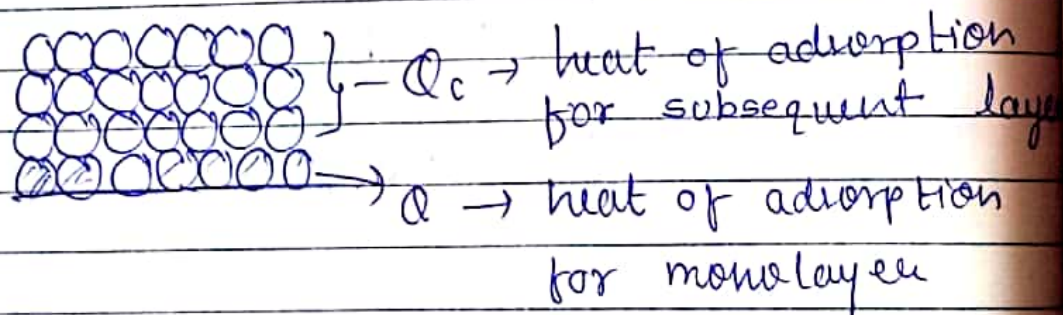 Qc → heat of adsorption
for subsequent laye
Q → heat of adsorption
for monolayer